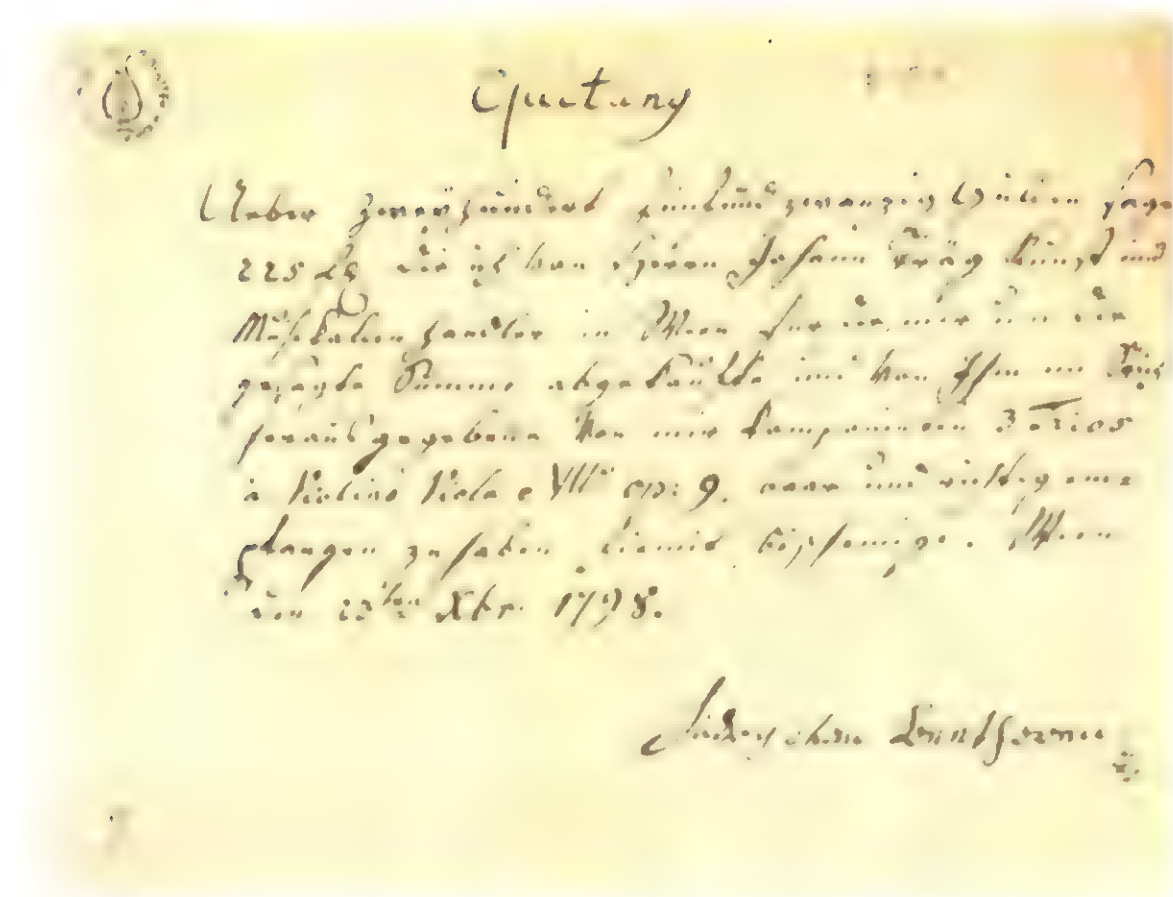 Quittung
Ueber zweyhundert fünfundzwanzig Gulden sage
225 die ich von Herrn Johann Träg Kunst und
Musikalienhändler in Wien für die mir um die
gesagte Summe abgekaufte und von Ihm im Stich
herausgegebene von mir komponirten 3 Trios
à Violino Viola e Vllo op: 9. baar und richtig em=
pfangen zu haben hiemit bescheinige. Wien
den Xbr. 1798.
Ludwig van Beethoven